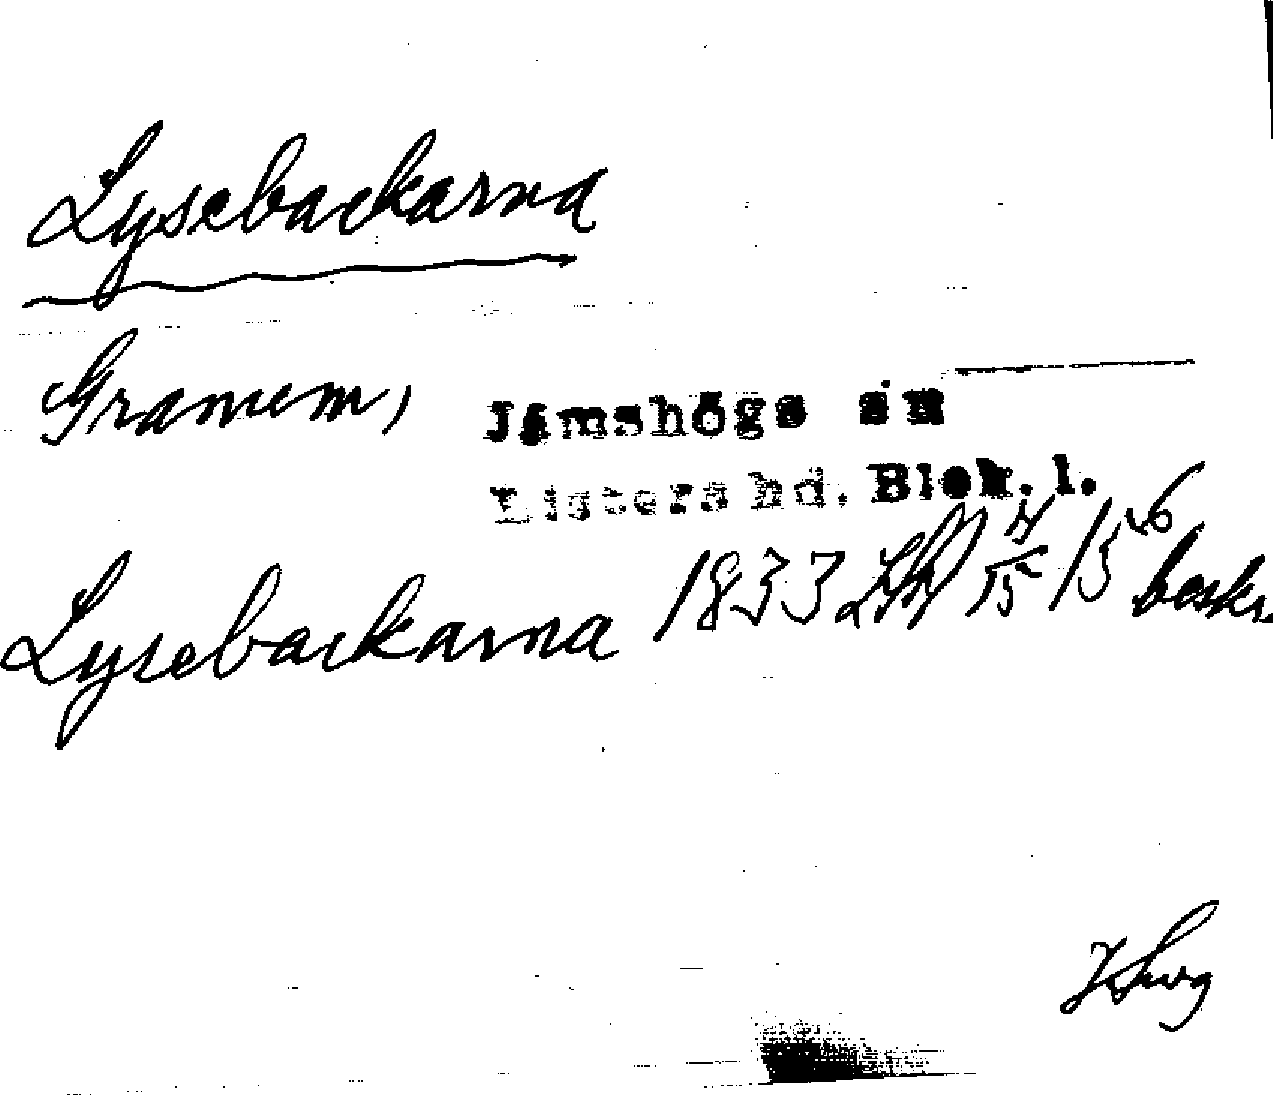 Lysebackarna
Gramem, Jämshögs sn
Listers hd. Blek. l.
Lysebackarna 1833 LSA 4/15 15 beskr.